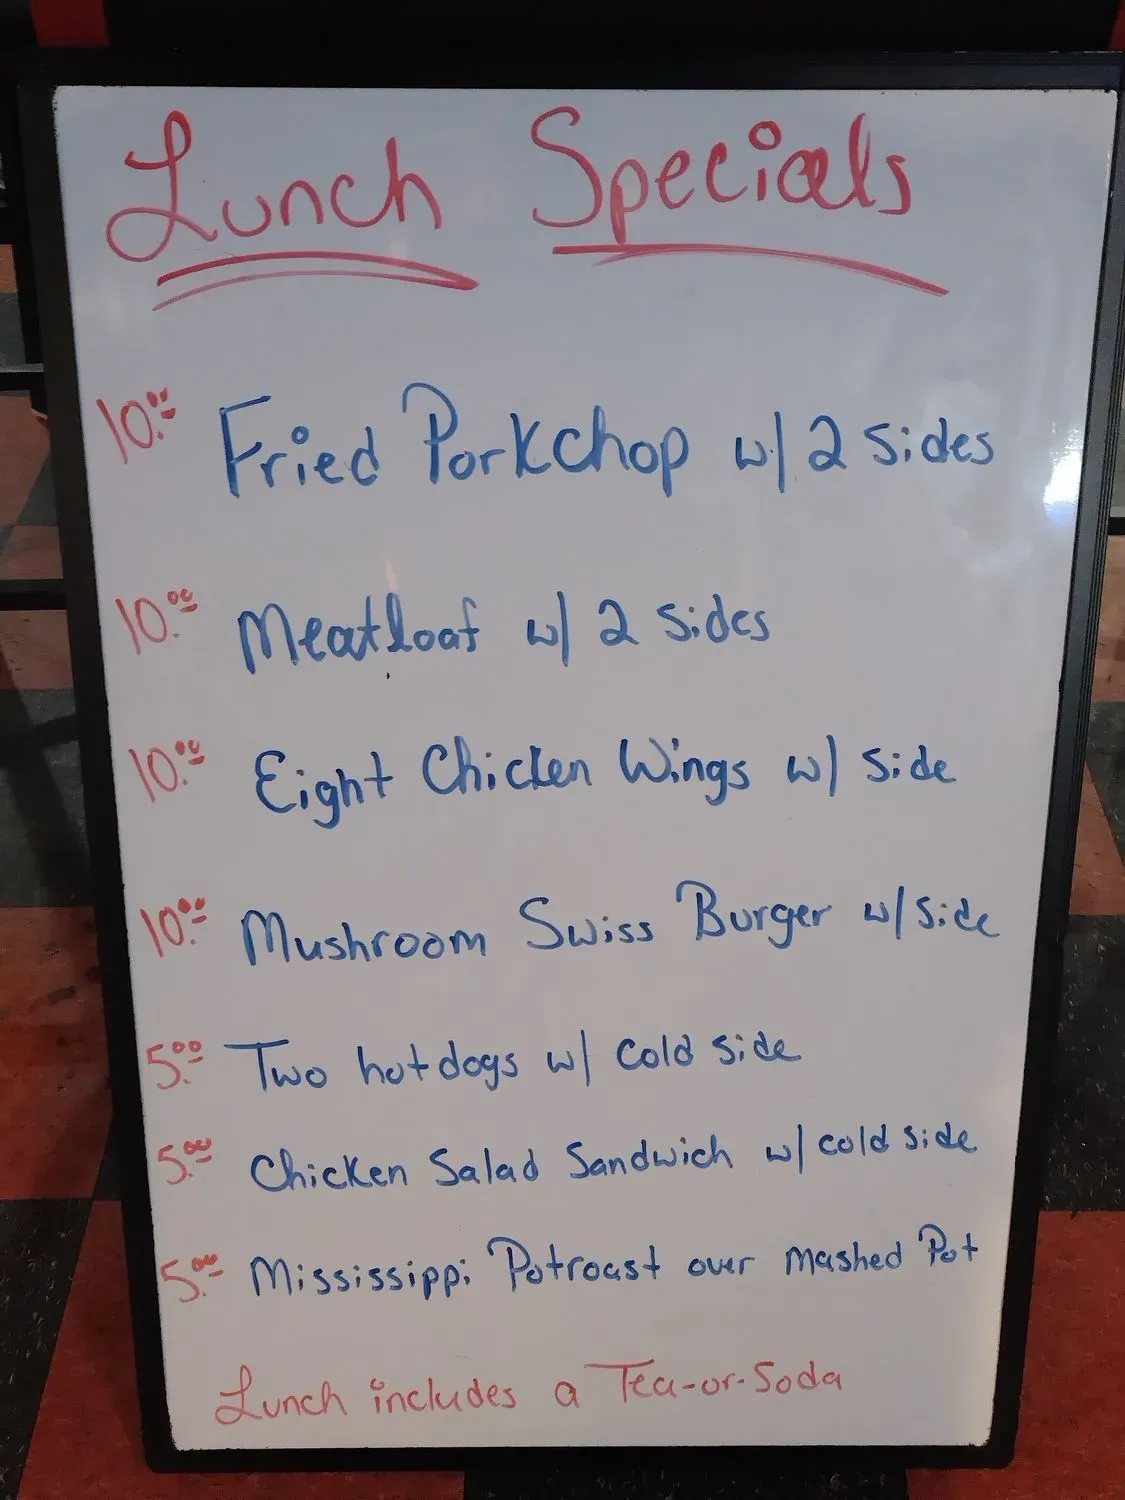 Lunch Specials
10.00 Fried Porkchop w/ 2 sides
10.00 Meatloaf w/ 2 sides
10.00 Eight Chicken Wings w/ side
10.00 Mushroom Swiss Burger w/ side
5.00 Two hotdogs w/ cold side
5.00 Chicken Salad Sandwich w/ cold side
5.00 Mississippi Potroast over mashed Pot
Lunch includes a Tea-or-Soda